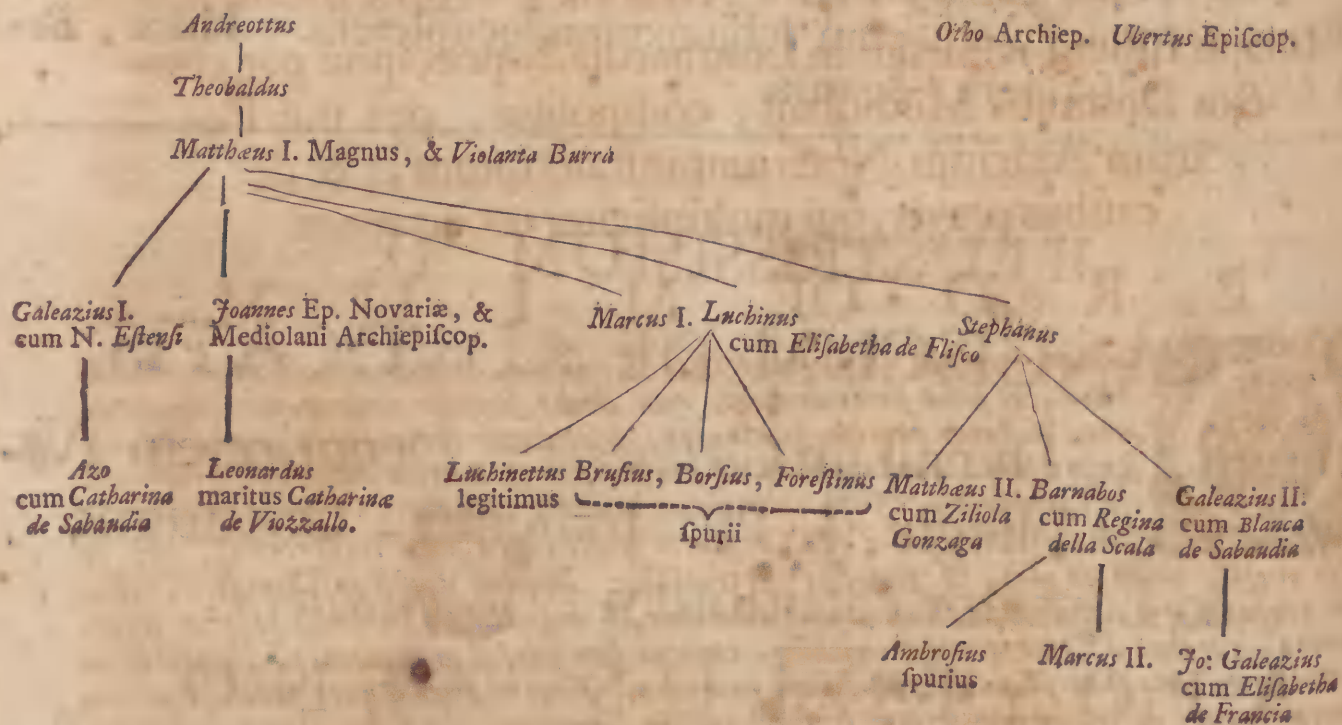 Andreottus
Otho Archiep. Ubertus Epiſcop.
Theobaldus
Matthæus I. Magnus, & Violanta Burrà
Galeazius I.
cum N. Eſtenſi
Joannes Ep. Novariæ, &
Mediolani Archiepiſcop.
Marcus I. Luchinus
cum Eliſabetha de Fliſco
Stephanus
Azo
cum Catharina
de Sabaudia
Leonardus
maritus Catharinæ
de Viozzallo.
Luchinettus
legitimus
Bruſius, Borſius, Foreſtinus
ſpurii
Matthæus II.
cum Ziliola
Gonzaga
Barnabos
cum Regina
della Scala
Galeazius II.
cum Blanca
de Sabaudia
Ambroſius
ſpurius
Marcus II.
Jo: Galeazius
cum Eliſabetha
de Francia